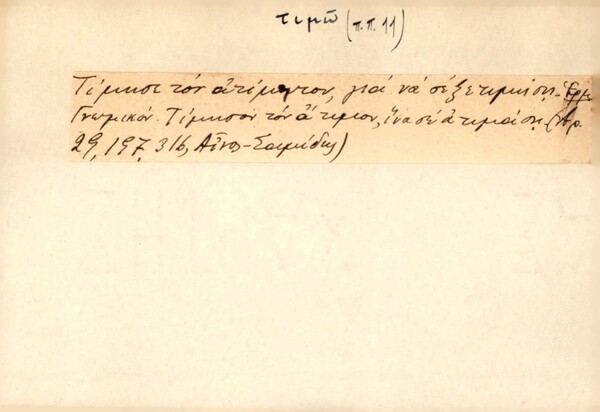 τιμῶ (π.π. 11)
Τίμησε τὸν ἀτίμητον, γιὰ νὰ σὲ ξετιμήση. Ἑρμ.
Γνωμικόν. Τίμησον τὸν ἄτιμον, ἵνα σὲ ἀτιμάση. (Ἀρ.
29, 197, 316, Αἶνος-Σαμίδης)